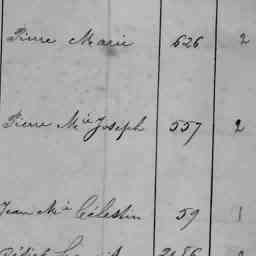 Pierre Marie 626 2
Pierre Mie Joseph 557 2
Jean Mie Célestin 59 1